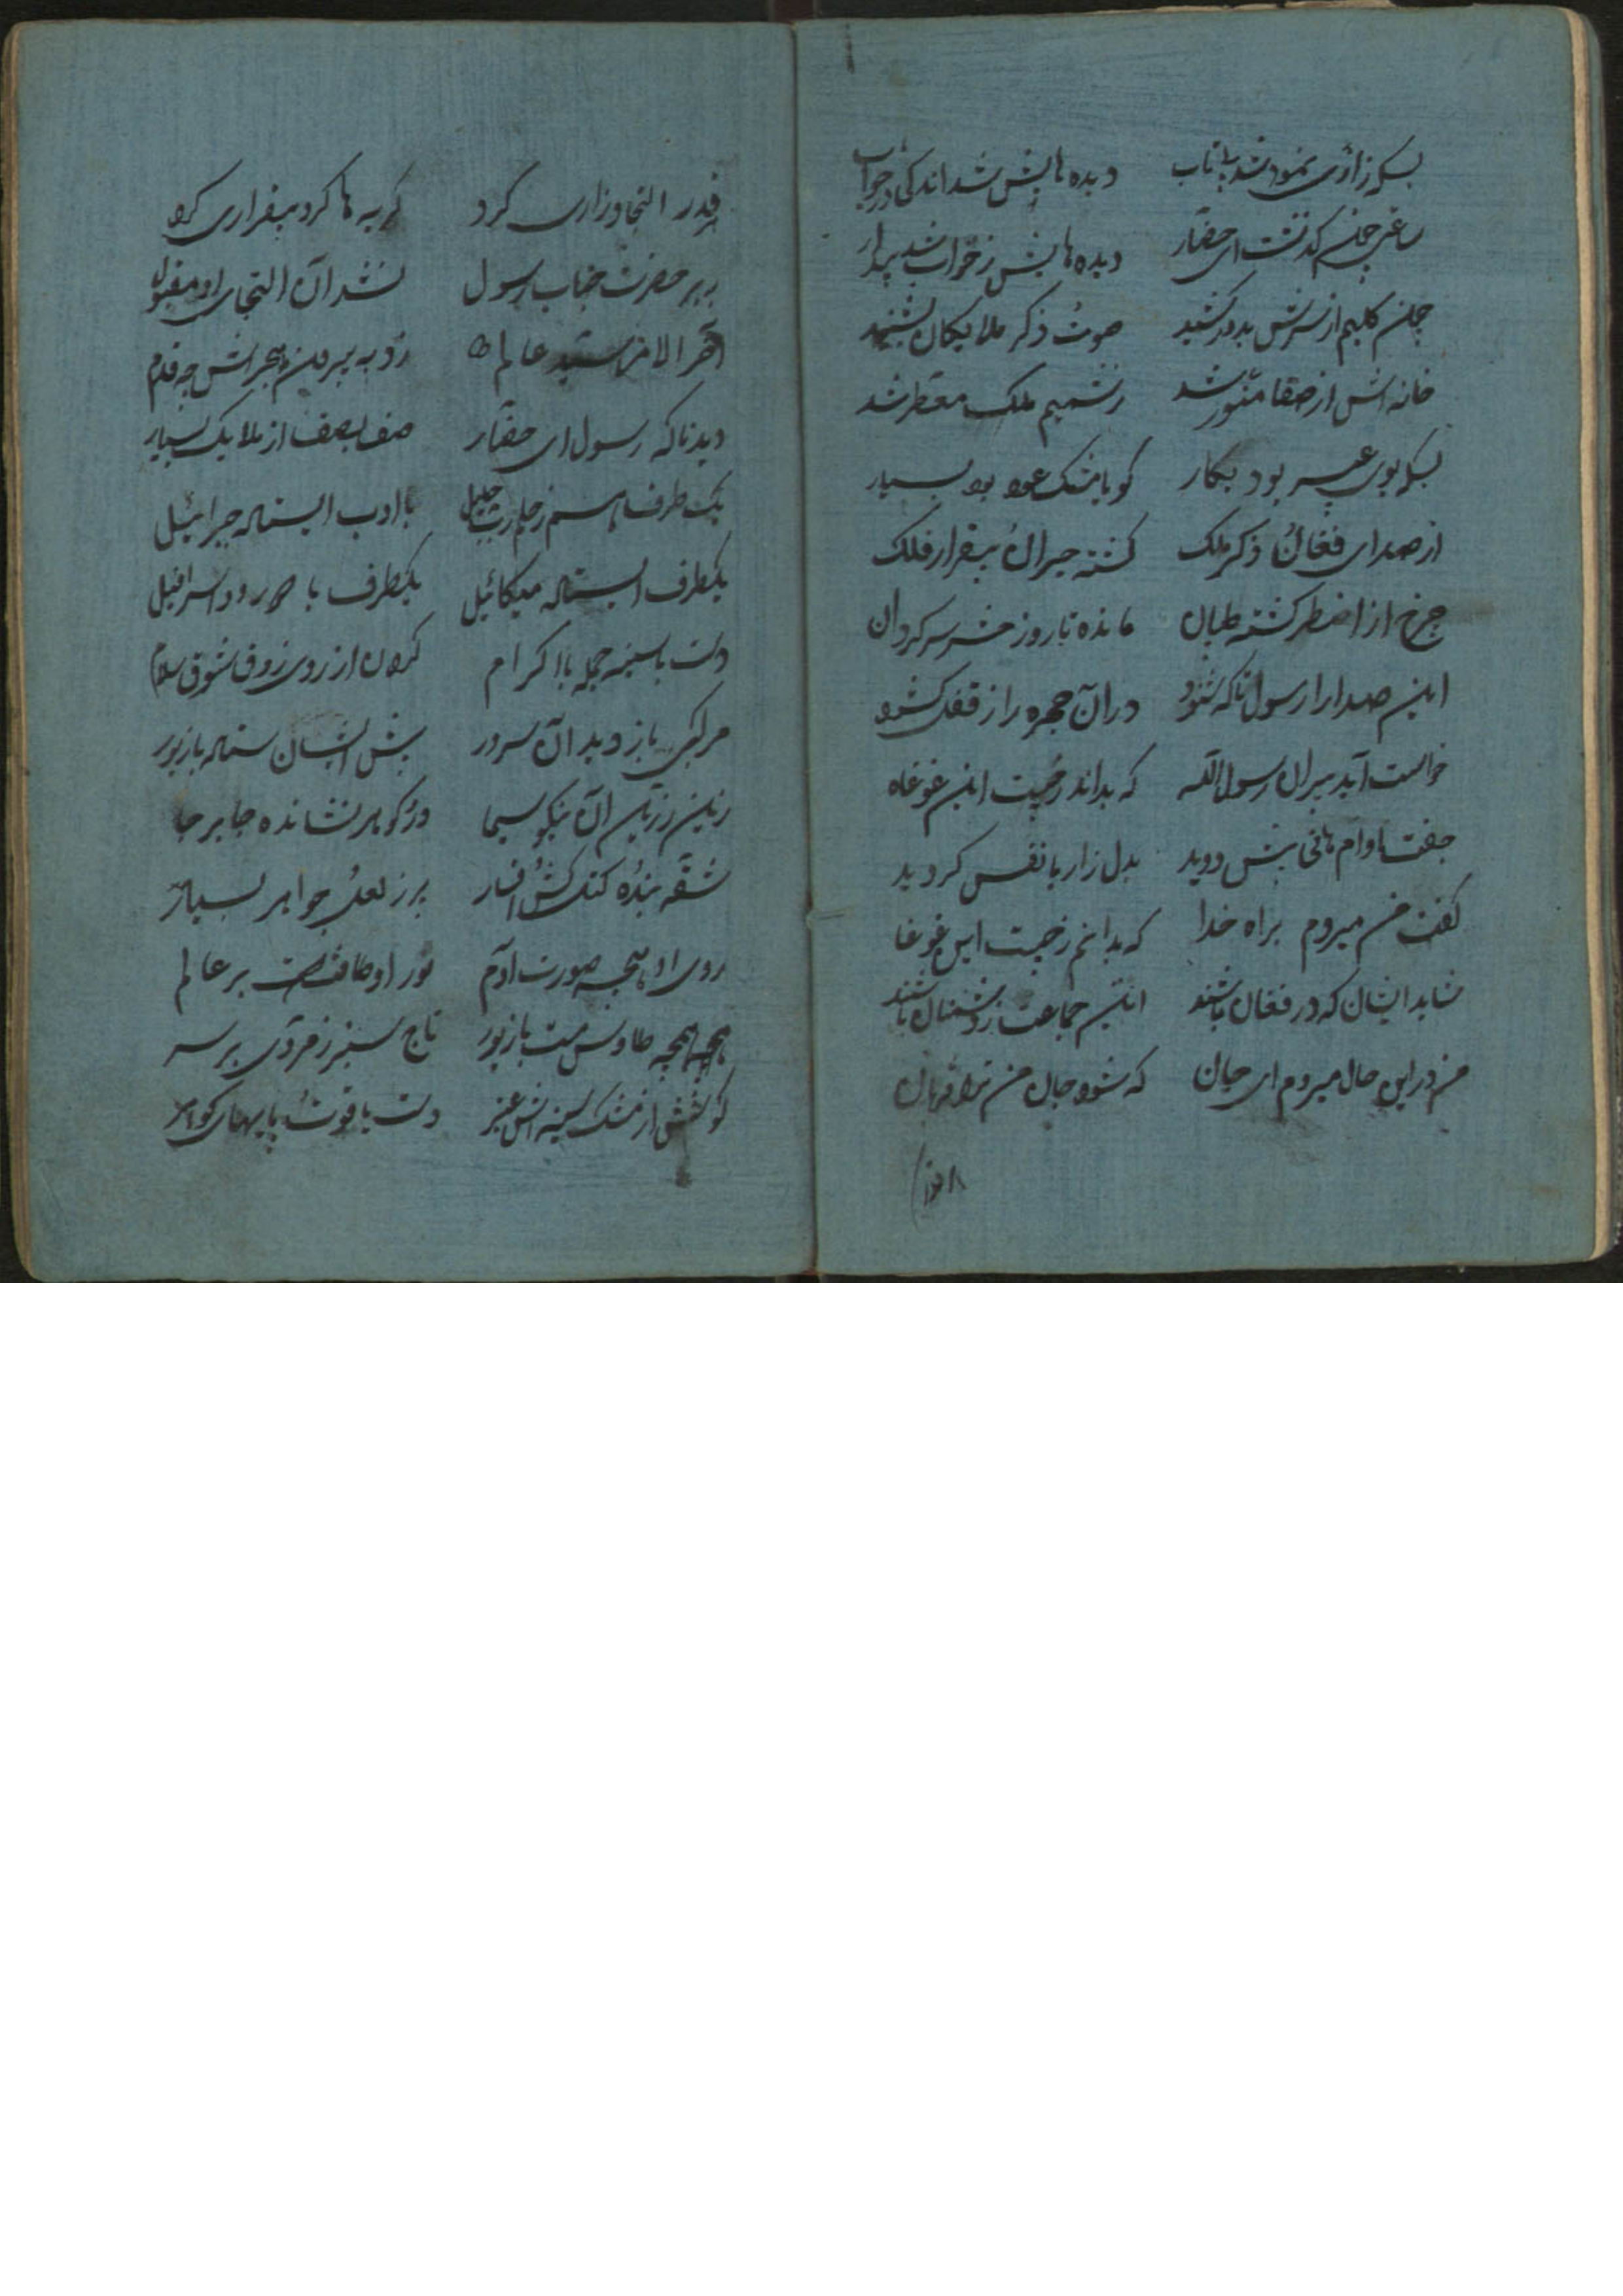 بسکه زاری نمود شد بی تاب دیده هایش شد اندکی در خواب
ساعتی چون گذشت ای حضار دیده هایش ز خواب شد بیدار
چون کلیم از سرش بدور کشید صوت ذکر ملایکان بشنید
خانه اش از صفا منور شد ز شمیم ملک معطر شد
بسکه بوی عبیر بود بکار گویا مشک عود بود بسیار
از صدای فغان ذکر ملک گشته حیران بیقرار فلک
چرخ از اضطر گشته طپان مانده تا روز حشر سرگردان
این صدا را رسول تا که شنود در آن حجره را ز قفل گشود
خواست آید برون رسول الله که بداند ز چیست این غوغاه
جفت او ام هانی پیش دوید بدل زار با نفس گردید
گفت من میروم براه خدا که بدانم ز چیست این غوغا
شاید ایشان که در فغان باشند این جماعت ز دشمنان باشند
من در این حال میروم ای جان که شود جان من ترا قربان
قدر التجا و زاری کرد گریه ها کرد بیقراری کرد
بر حضرت جناب رسول نشد آن التجای او مقبول
آخر الامر سید عالم زد به بیرون حجراتش چه قدم
دید تا که رسول ای حضار صف بصف از ملایک بسیار
یک طرف هم ز جلیل با ادب ایستاده جبرائیل
یکطرف ایستاده میکائیل یکطرف با اسرافیل
دست با سینه جمله با اکرام کردن از روی ذوق شوق سلام
مرکبی باز دید آن سرور پیش ایشان ستاده با زیور
زین زرین آن نیکو سیما در گوهر نشانده جا بر جا
شقه بنده افسار بر ز لعل جواهر بسیار
روی او همچه صورت آدم نور او بر عالم
همچه طاوس مست با زیور تاج سبز زمردی بر سر
گوشش از مشک سینه اش عنبر دست یاقوت پایهای گوهر